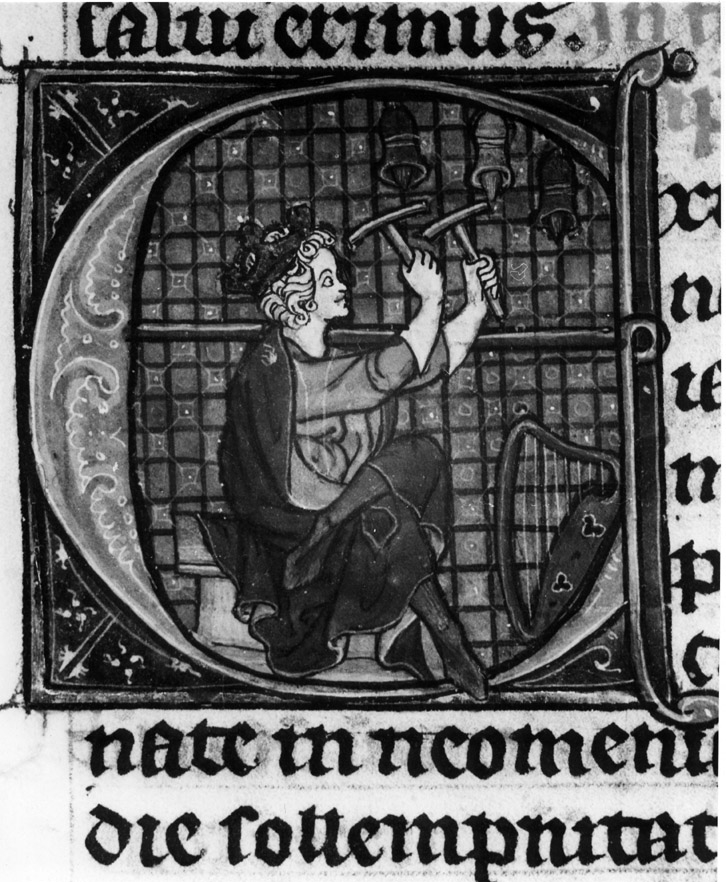 salui erimus.
E
x
n
ie
n
p
c
nate in neomeni
die sollempnitat